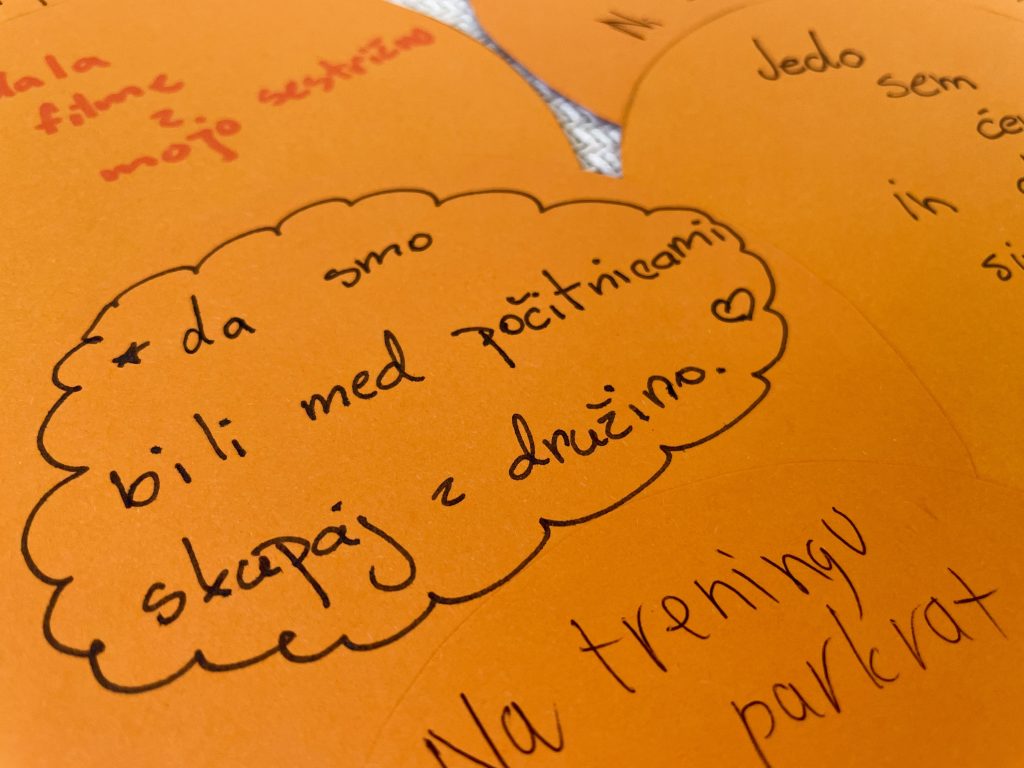 filme
z
mojo sestrično
Jedo
sem
ih
* da smo
bili med počitnicami
skupaj z družino.
Na treningu
parkrat